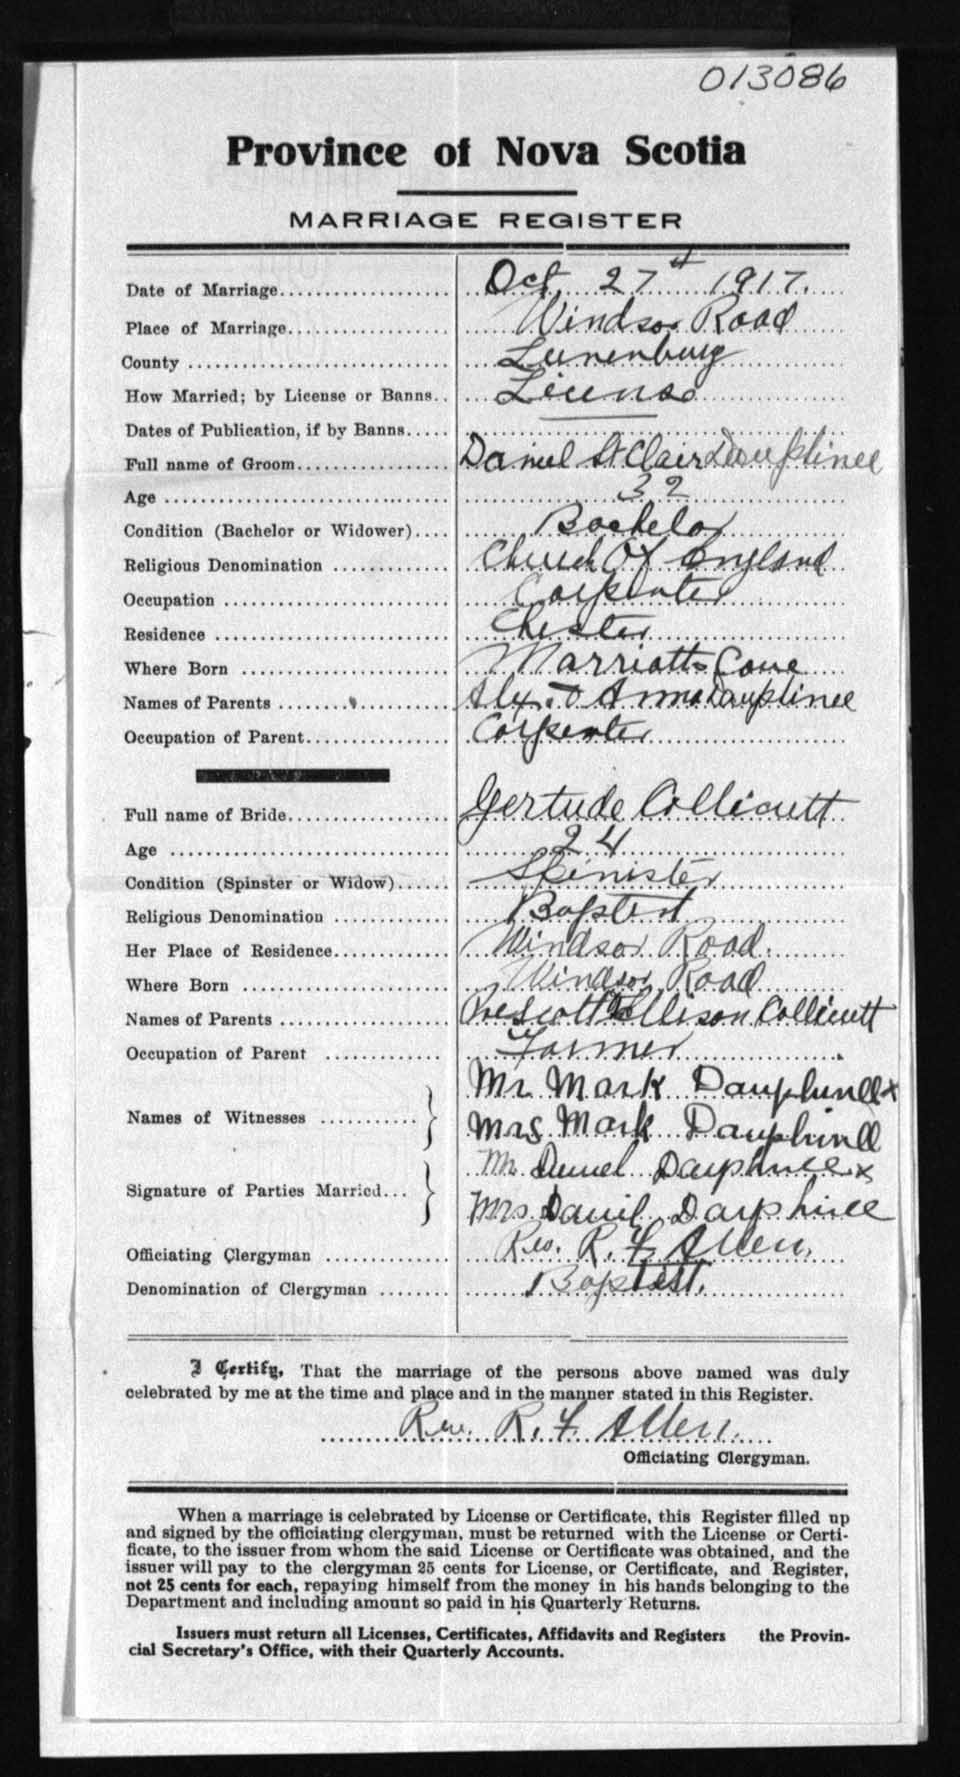 013086
Province of Nova Scotia
MARRIAGE REGISTER
Date of Marriage Oct 27th 1917.
Place of Marriage Windsor Road
County Lunenburg
How Married; by License or Banns License
Dates of Publication, if by Banns
Full name of Groom Daniel St Clair Dauphinee
Age 32
Condition (Bachelor or Widower) Bachelor
Religious Denomination Church Of England
Occupation Carpenter
Residence Chester
Where Born Marriotts Cove
Names of Parents Alex. & Anna Dauphinee
Occupation of Parent Carpenter
Full name of Bride Gertude Collicutt
Age 24
Condition (Spinster or Widow) Spinister
Religious Denomination Baptist
Her Place of Residence Windsor Road.
Where Born Windsor Road
Names of Parents Prescott & Ellison Collicutt
Occupation of Parent Farmer
Names of Witnesses Mr Mark Dauphinee x
Mrs Mark Dauphinee
Signature of Parties Married Mr. Daniel Dauphinee x
Mrs Daniel Dauphinee
Officiating Clergyman Rev. R. F. Allen.
Denomination of Clergyman Baptist.
I Certify, That the marriage of the persons above named was duly
celebrated by me at the time and place and in the manner stated in this Register.
Rev. R. F. Allen.
Officiating Clergyman.
When a marriage is celebrated by License or Certificate, this Register filled up
and signed by the officiating clergyman, must be returned with the License or Certi-
ficate, to the issuer from whom the said License or Certificate was obtained, and the
issuer will pay to the clergyman 25 cents for License, or Certificate, and Register,
not 25 cents for each, repaying himself from the money in his hands belonging to the
Department and including amount so paid in his Quarterly Returns.
Issuers must return all Licenses, Certificates, Affidavits and Registers the Provin-
cial Secretary's Office, with their Quarterly Accounts.